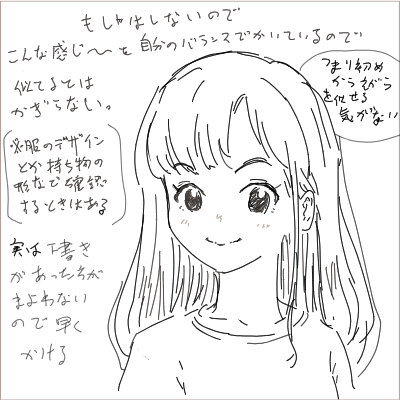 もしゃはしないので
こんな感じ〜を自分のバランスでかいているので
似てるとは
かぎらない。
※服のデザイン
とか持ち物の
形などで確認
するときはある
実は下書き
があった方が
まよわない
ので早く
かける
つまり初め
から
を似せる
気がない